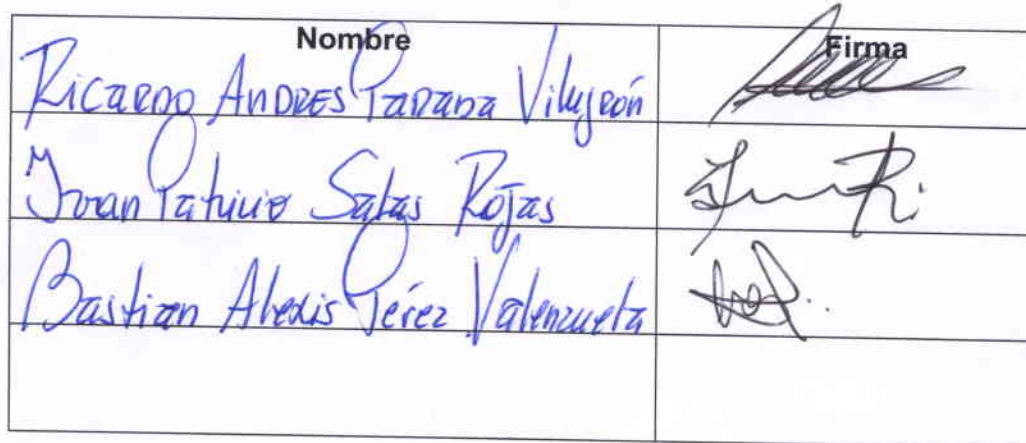 Nombre Firma
Ricardo Andres Parada Vilugrón
Juan Patricio Salas Rojas
Bastian Alexis Pérez Valenzuela